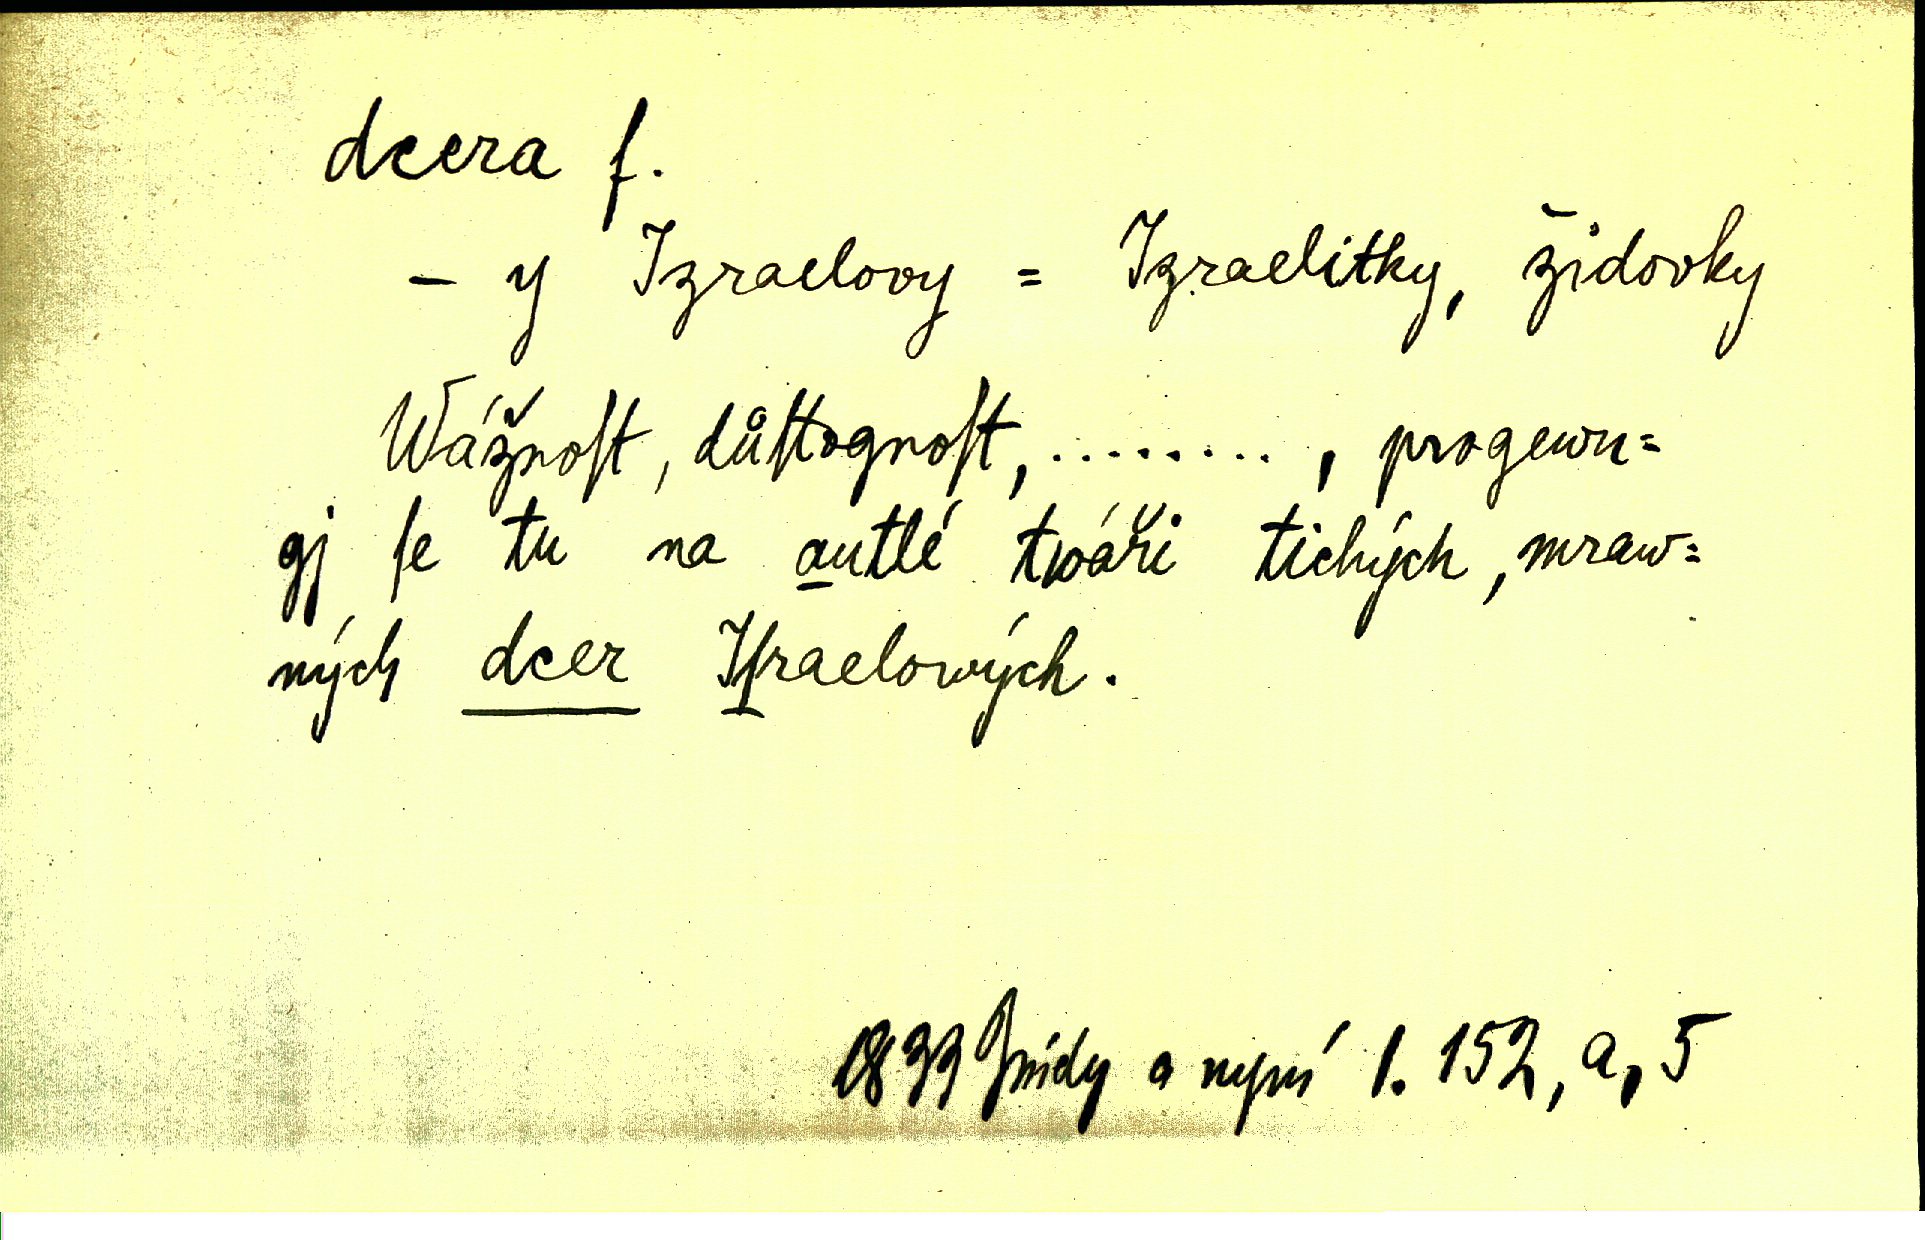 dcera f.
– y Izraelovy = Izraelitky, židovky
Wážnoſt, důſtognoſt, ........., progewu=
gj ſe tu na autlé twáři tichých, mraw=
ných dcer Iſraelowých.
1833 Jindy a nyní 1. 152, a, 5